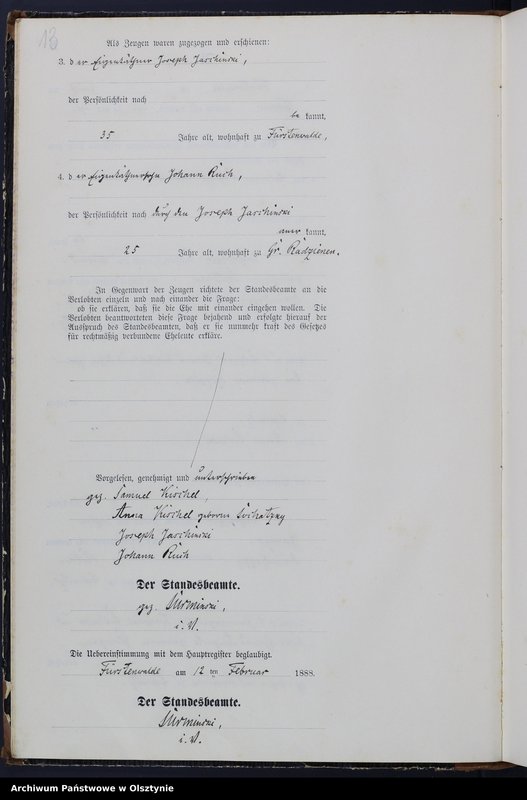 13
Als Zeugen waren zugezogen und erschienen:
3. d er Eigenkäthner Joseph Jaschinski,
der Persönlichkeit nach
be kannt,
35 Jahre alt, wohnhaft zu Fürstenwalde,
4. d er Eigenkäthnersohn Johann Ruch,
der Persönlichkeit nach durch den Joseph Jaschinski
aner kannt,
25 Jahre alt, wohnhaft zu Gr. Radzienen.
In Gegenwart der Zeugen richtete der Standesbeamte an die
Verlobten einzeln und nach einander die Frage:
ob sie erklären, daß sie die Ehe mit einander eingehen wollen. Die
Verlobten beantworteten diese Frage bejahend und erfolgte hierauf der
Ausspruch des Standesbeamten, daß er sie nunmehr kraft des Gesetzes
für rechtmäßig verbundene Eheleute erkläre.
Vorgelesen, genehmigt und unterschrieben
gez. Samuel Kirschel,
Anna Kirschel geborene
Joseph Jaschinski
Johann Ruch
Der Standesbeamte.
gez. Surminski,
i. V.
Die Uebereinstimmung mit dem Hauptregister beglaubigt.
Fürstenwalde am 12 ten Februar 1888.
Der Standesbeamte.
Surminski,
i. V.
Archiwum Państwowe w Olsztynie